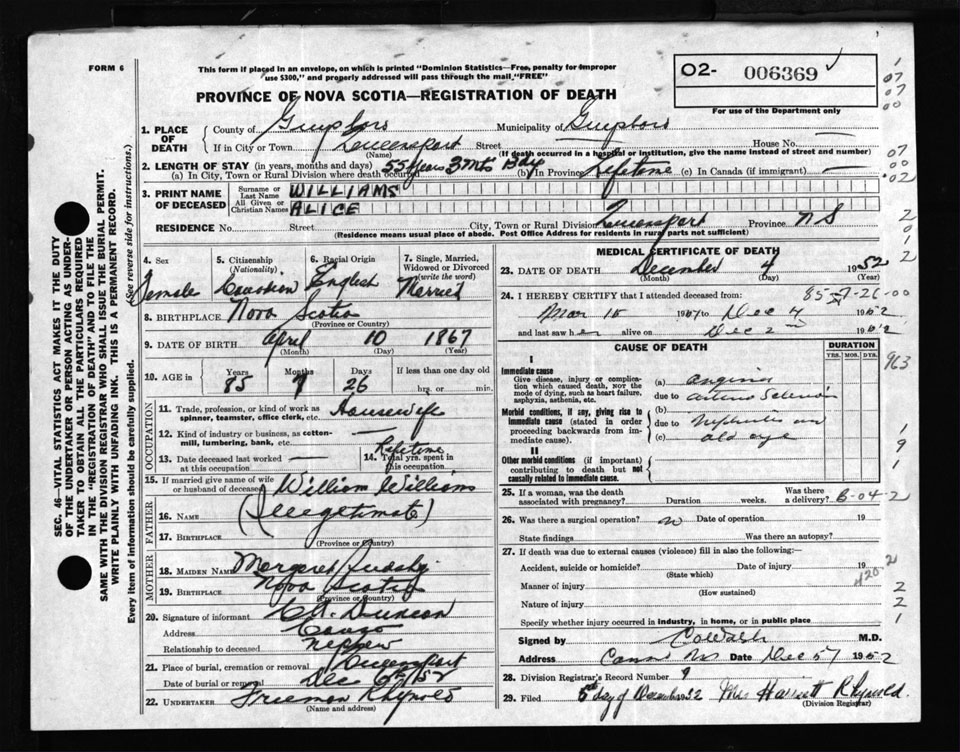 FORM 6
This form if placed in an envelope, on which is printed "Dominion Statistics—Free, penalty for improper
use $300," and properly addressed will pass through the mail "FREE"
PROVINCE OF NOVA SCOTIA—REGISTRATION OF DEATH
02- 006369
For use of the Department only
1. PLACE OF DEATH County of Guysboro Municipality of Guysboro
If in City or Town Queensport Street House No.
(Name) (If death occurred in a hospital or institution, give the name instead of street and number)
2. LENGTH OF STAY (in years, months and days) 55 years 3 Mts
(a) In City, Town or Rural Division where death occurred (b) In Province Lifetime (c) In Canada (if immigrant) —
3. PRINT NAME OF DECEASED Surname or Last Name WILLIAMS
All Given or Christian Names ALICE
RESIDENCE No. Street City, Town or Rural Division Queensport Province N S
(Residence means usual place of abode. Post Office Address for residents in rural parts not sufficient)
4. Sex Female
5. Citizenship (Nationality) Canadian
6. Racial Origin English
7. Single, Married, Widowed or Divorced (write the word) Married
8. BIRTHPLACE Nova Scotia
(Province or Country)
9. DATE OF BIRTH April 10 1867
(Month) (Day) (Year)
10. AGE in Years Months Days If less than one day old
85 7 26 hrs. or min.
OCCUPATION
11. Trade, profession, or kind of work as spinner, teamster, office clerk, etc. Housewife
12. Kind of industry or business, as cotton-mill, lumbering, bank, etc. —
13. Date deceased last worked at this occupation —
14. Total yrs. spent in this occupation Lifetime
15. If married give name of wife or husband of deceased William Williams
FATHER
16. NAME (Illegitimate)
17. BIRTHPLACE
(Province or Country)
MOTHER
18. MAIDEN NAME Margaret
19. BIRTHPLACE Nova Scotia
(Province or Country)
20. Signature of informant Duncan
Address Canso
Relationship to deceased Nephew
21. Place of burial, cremation or removal Queensport
Date of burial or removal Dec 6th/52
22. UNDERTAKER Freeman Rhynold
(Name and address)
MEDICAL CERTIFICATE OF DEATH
23. DATE OF DEATH December 4 1952
(Month) (Day) (Year)
24. I HEREBY CERTIFY that I attended deceased from: 85-7-26-00
Mar 15 to Dec 4
and last saw her alive on Dec 2
CAUSE OF DEATH
DURATION
YRS. MOS. DYS.
I
Immediate cause
Give disease, injury or complication which caused death, NOT the mode of dying, such as heart failure, asphyxia, asthenia, etc.
(a) angina
due to
Morbid conditions, if any, giving rise to immediate cause (stated in order proceeding backwards from immediate cause).
(b)
due to Nephritis
(c) old age
II
Other morbid conditions (if important) contributing to death but not causally related to immediate cause.
25. If a woman, was the death associated with pregnancy? Duration weeks. Was there a delivery? B-04-2
26. Was there a surgical operation? no Date of operation 19
State findings Was there an autopsy?
27. If death was due to external causes (violence) fill in also the following:—
Accident, suicide or homicide? Date of injury 19
(State which)
420-2
Manner of injury
(How sustained)
Nature of injury
Specify whether injury occurred in industry, in home, or in public place
Signed by M.D.
Address Canso NS Date Dec 5 1952
28. Division Registrar's Record Number 9
29. Filed 5th day of December 52 Mrs Harriett Rhynold.
(Division Registrar)
SEC. 46—VITAL STATISTICS ACT MAKES IT THE DUTY
OF THE UNDERTAKER OR PERSON ACTING AS UNDER-
TAKER TO OBTAIN ALL THE PARTICULARS REQUIRED
IN THE "REGISTRATION OF DEATH" AND TO FILE THE
SAME WITH THE DIVISION REGISTRAR WHO SHALL ISSUE THE BURIAL PERMIT.
WRITE PLAINLY WITH UNFADING INK. THIS IS A PERMANENT RECORD.
Every item of information should be carefully supplied. (See reverse side for instructions.)
07
07
00
07
00
02
2
0
1
2
963
1
9
1
2
2
1